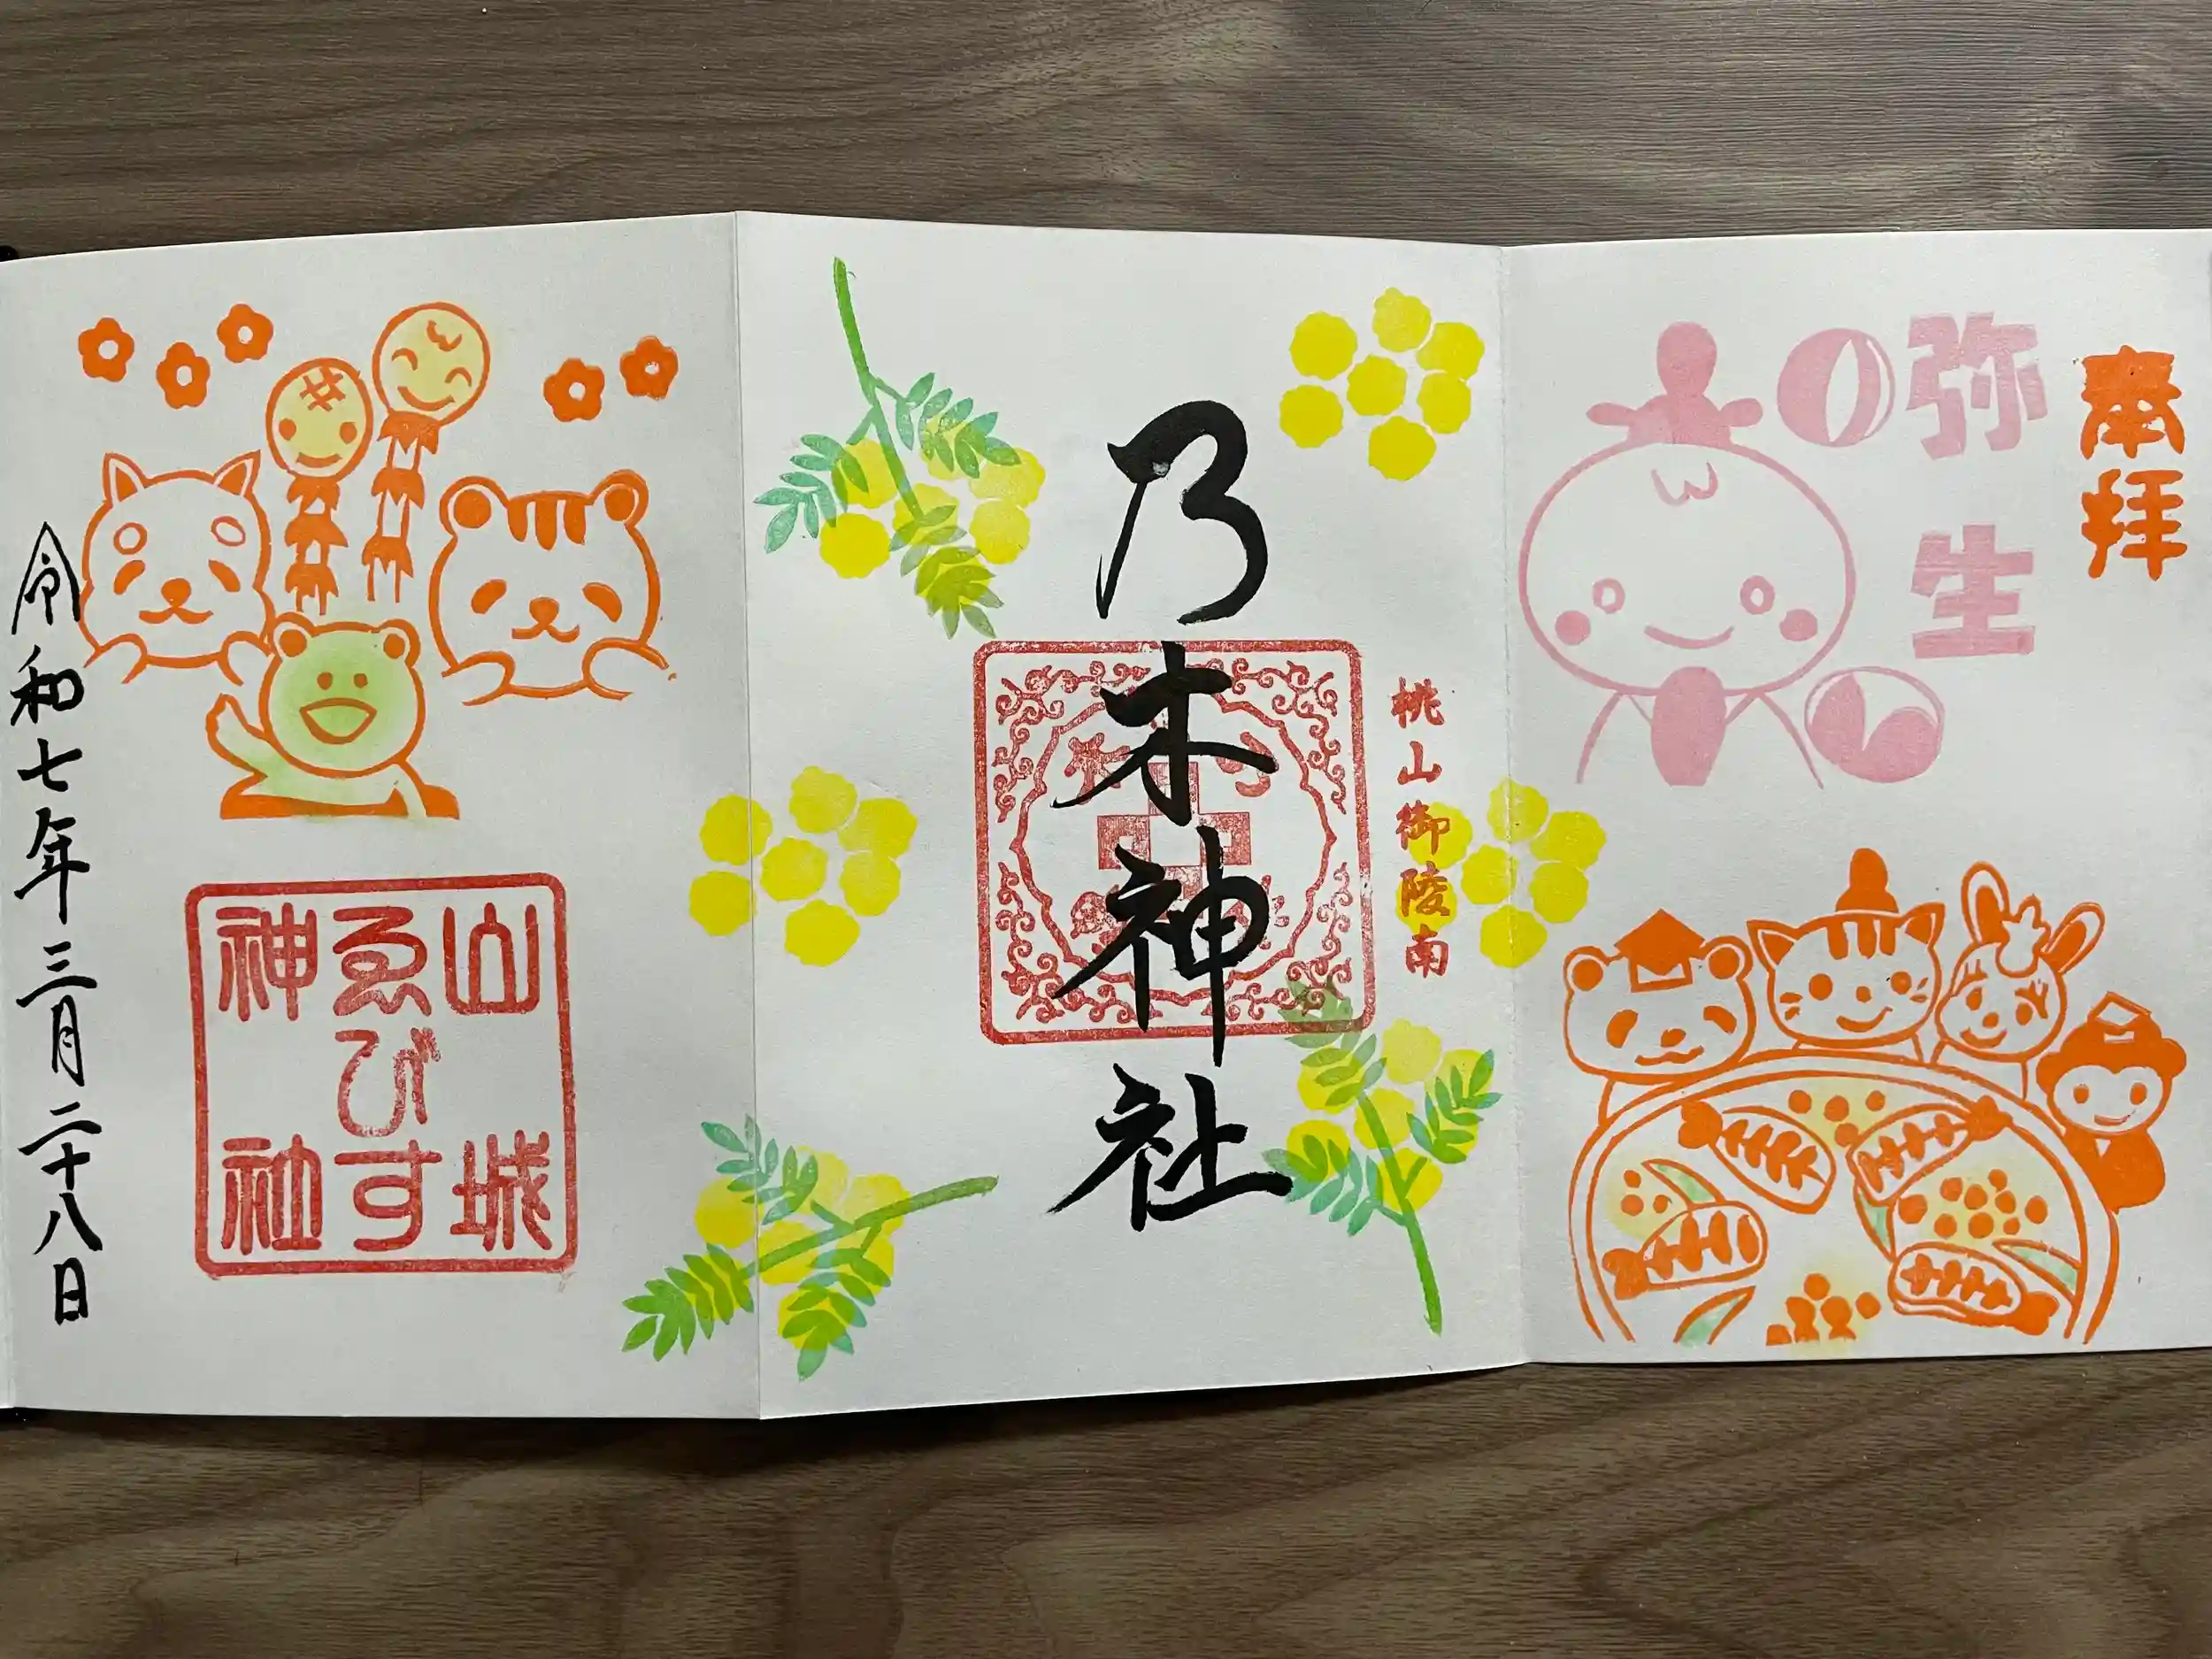 奉拝
弥生
桃山御陵南
乃木神社
山城
ゑびす
神社
令和七年三月二十八日